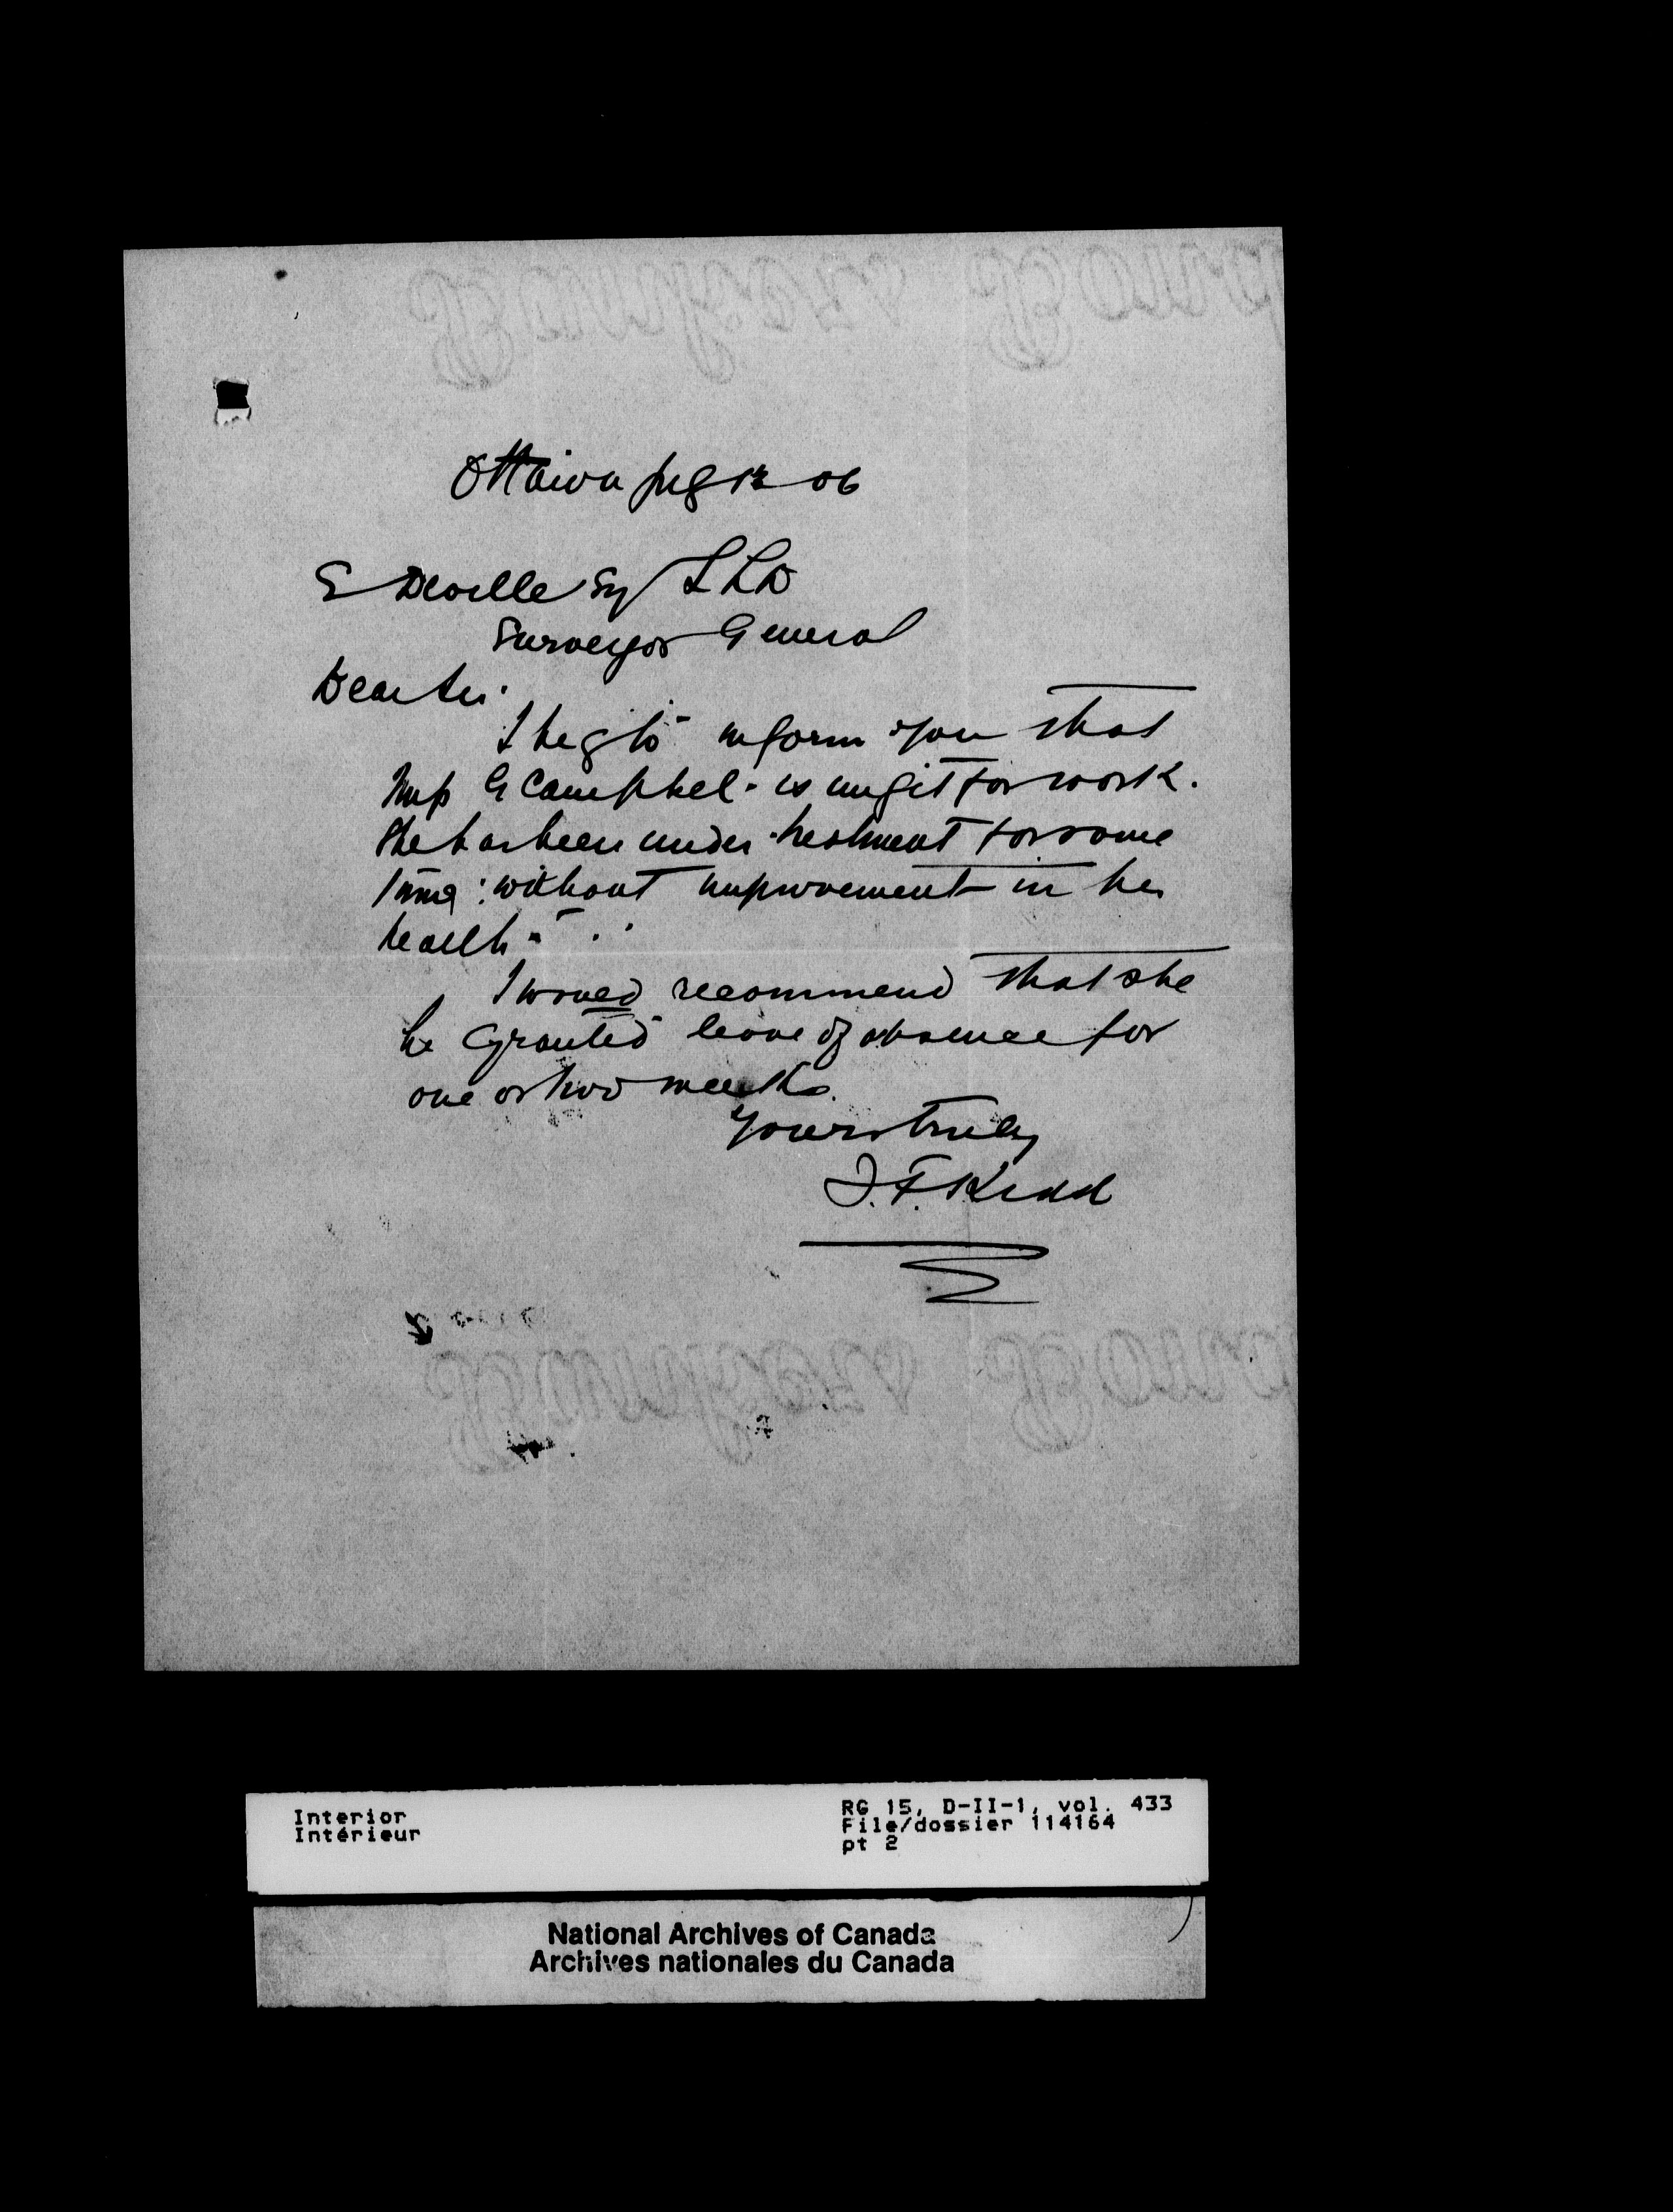 Ottawa Aug 12 06
E Deville Esq LLD
Surveyor General
Dear Sir.
I beg to inform you that
Miss G Campbel - is unfit for work.
She has been under treatment for some
time: without improvement in her
health -
I would recommend that she
be granted leave of absence for
one or two weeks.
Yours truly
J. F. Kidd
Interior
Intérieur
RG 15, D-II-1, vol. 433
File/dossier 114164
pt 2
National Archives of Canada
Archives nationales du Canada